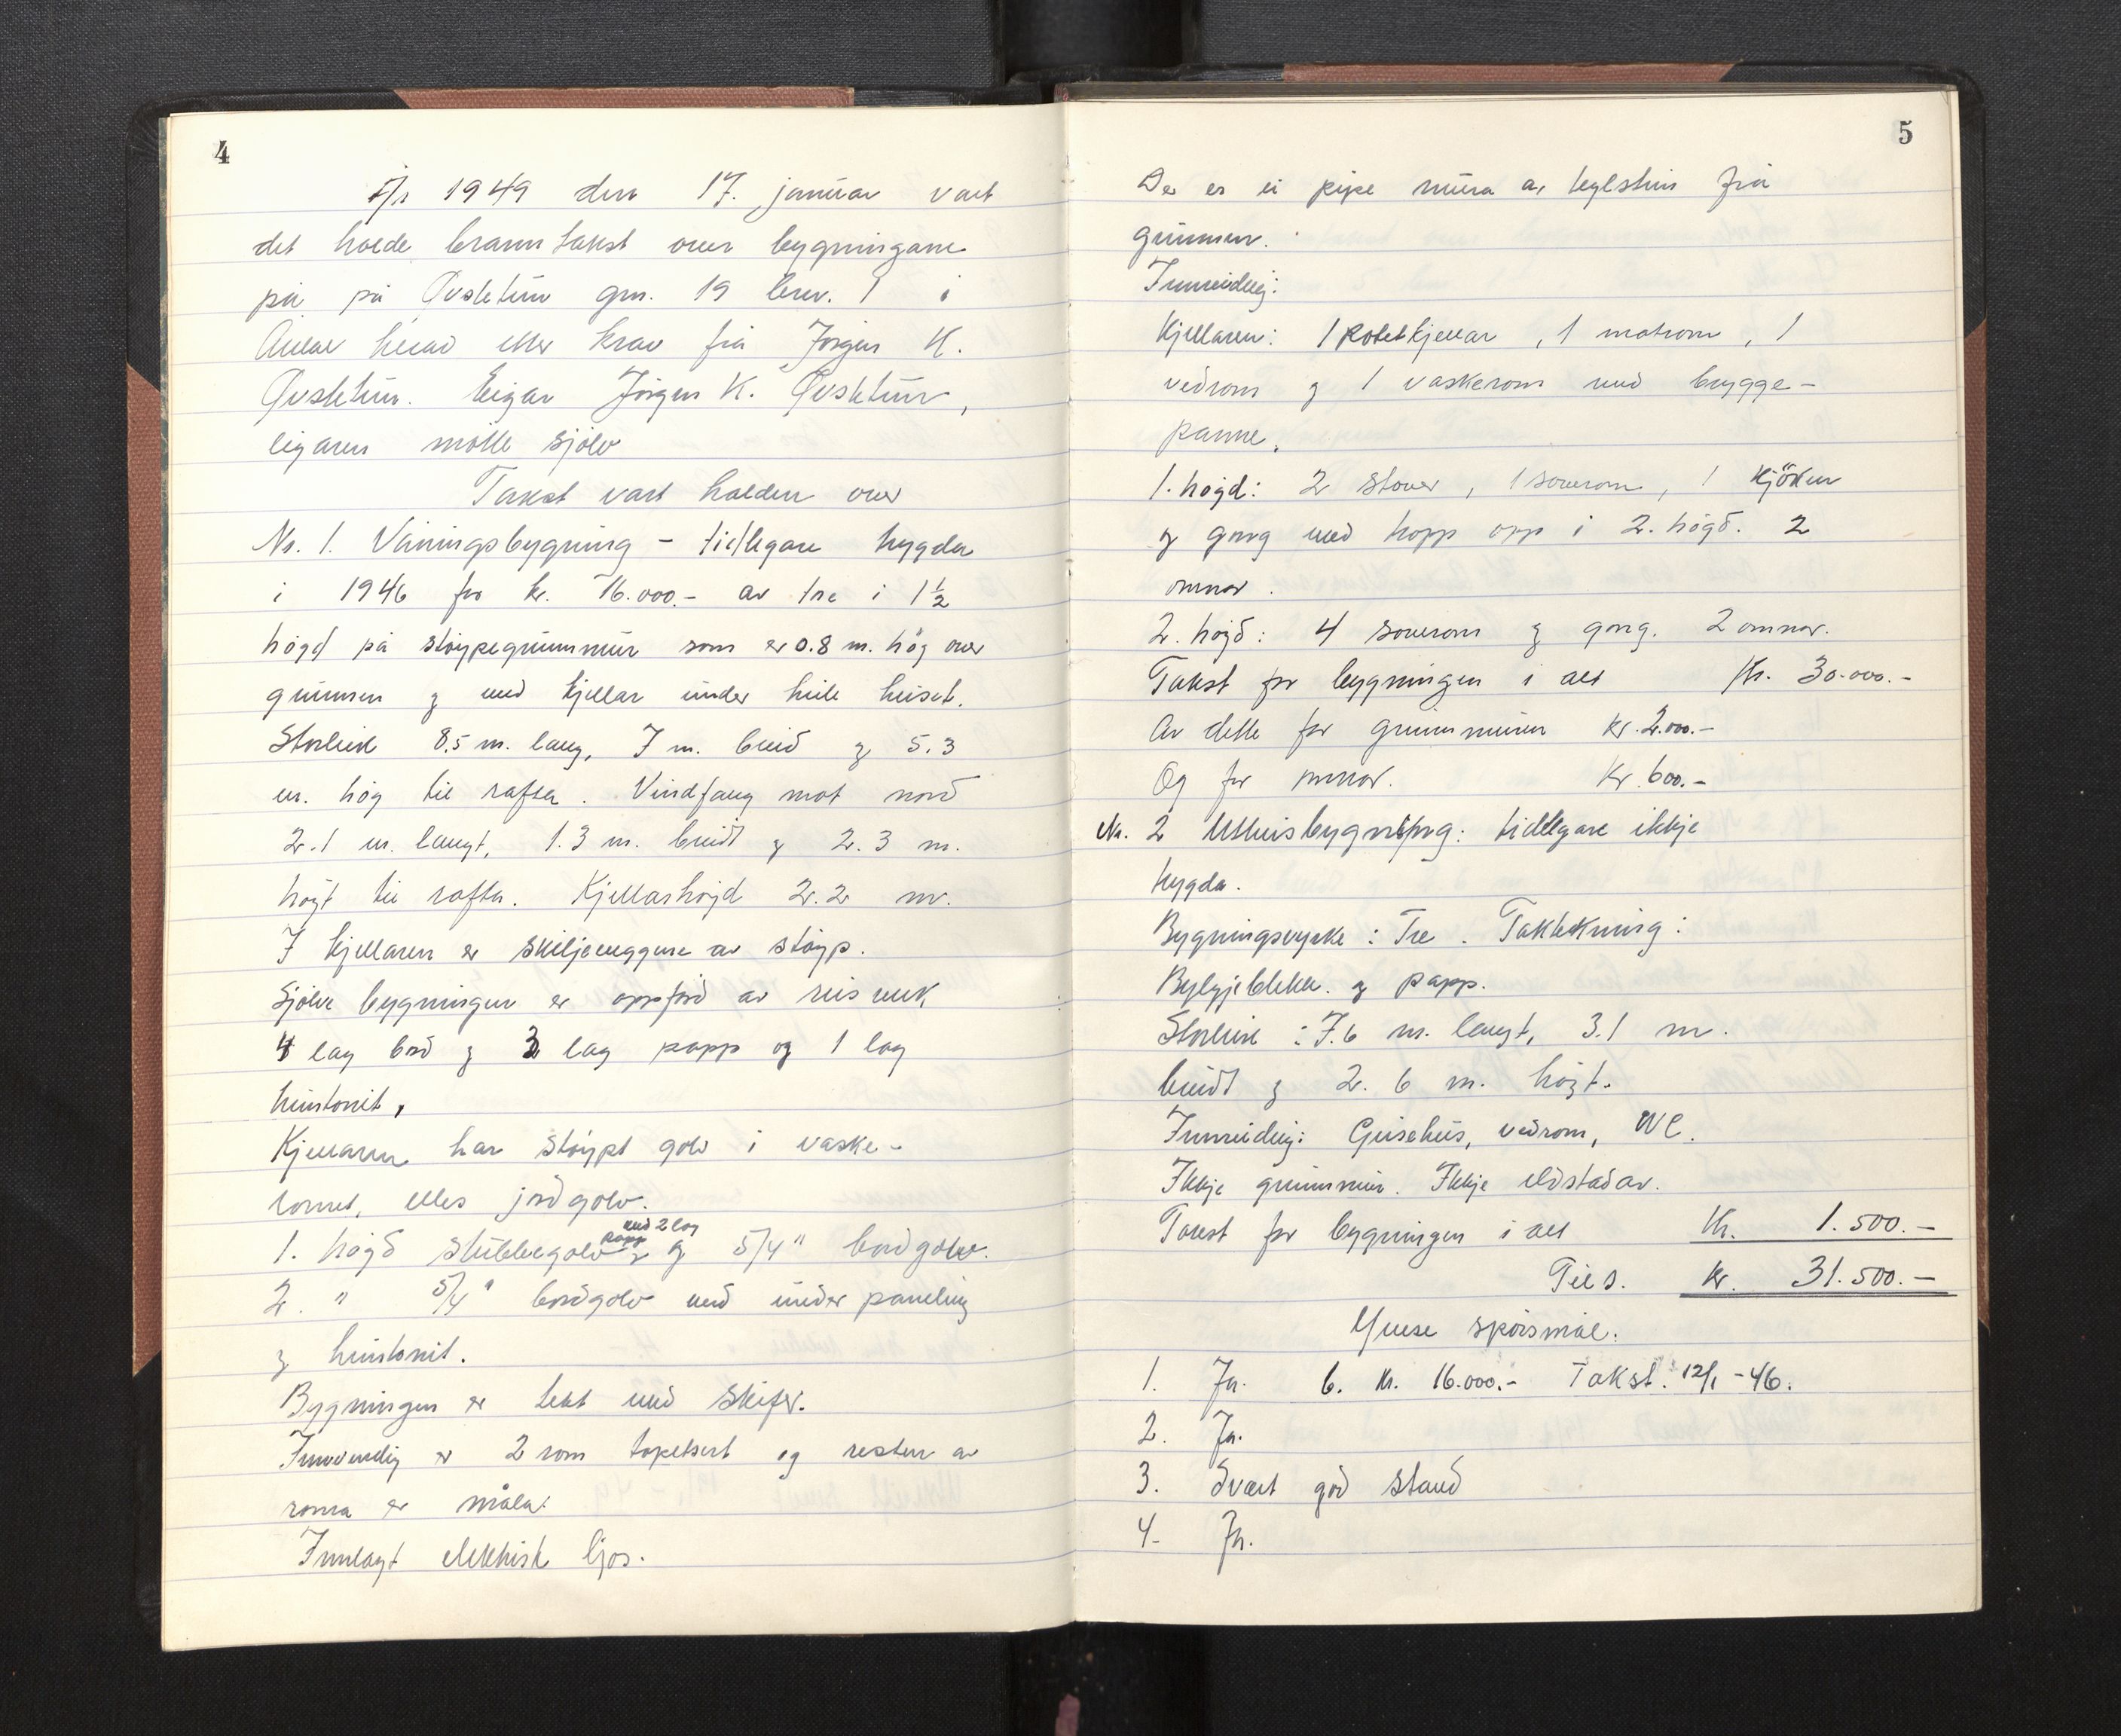 4
År 1949 den 17. januar vart
det halde branntakst over bygningane
på på Øvsletun gnr. 19 brnr. 1 i
herad etter krav frå Jörgen K.
Øvsletun. Eigar Jörgen K. Øvsletun,
eigaren mötte sjölv
Takst vart halden over
Nr. 1. Våningsbygning – tidlegare trygda
i 1946 for kr. 16.000.– av tre i 1 1/2
högd på stöypegrunnmur som er 0.8 m. hög over
grunnen og med kjellar under heile huset.
Storleik 8.5 m. lang, 7 m. breid og 5.3
m. hög til rafta. Vindfang mot nord
2.1 m. langt, 1.3 m. breidt og 2.3 m.
högt til rafta. Kjellarhöjd 2.2 m.
I kjellaren er skiljeveggene av stöyp.
Sjölve bygningen er oppförd av reisverk
4 lag bord og 3 lag papp og 1 lag
huntonit.
Kjellaren har stöypt golv i vaske-
romet, elles jordgolv.
med 2 lag
papp
1. högd stubbegolv og 5/4" bordgolv.
2. " 5/4" bordgolv med under paneling
og huntonit.
Bygningen er tekt med skifer.
Innvendig er 2 rom tapetsert og resten av
roma er måla.
Innlagt elektrisk ljos.
5
Der er ei pipe mura av teglstein frå
grunnen.
Innreiing:
Kjellaren: 1 potetkjellar, 1 matrom, 1
vedrom og 1 vaskerom med brygge-
panne.
1. högd: 2 stover, 1 soverom, 1 kjöken
og gang med tropp opp i 2. högd. 2
omnar.
2. högd: 4 soverom og gang. 2 omnar.
Takst for bygningen i alt Kr. 30.000.–
Av dette for grunnmuren kr. 2.000.–
Og for omnar. Kr. 600.–
Nr. 2 Uthusbygning: tidlegare ikkje
trygda.
Bygningsvyrke: Tre. Taktekning:
Bylgjeblekk og papp.
Storleik: 7.6 m. langt, 3.1 m.
breidt og 2.6 m. högt.
Innreiing: Grisehus, vedrom, WC.
Ikkje grunnmur. Ikkje eldstadar.
Takst for bygningen i alt Kr. 1.500.–
Til s. kr. 31.500.–
Ymse spörsmål.
1. Ja. b. kr. 16.000.– Takst. 12/1 –46.
2. Ja.
3. Svært god stand
4. Ja.